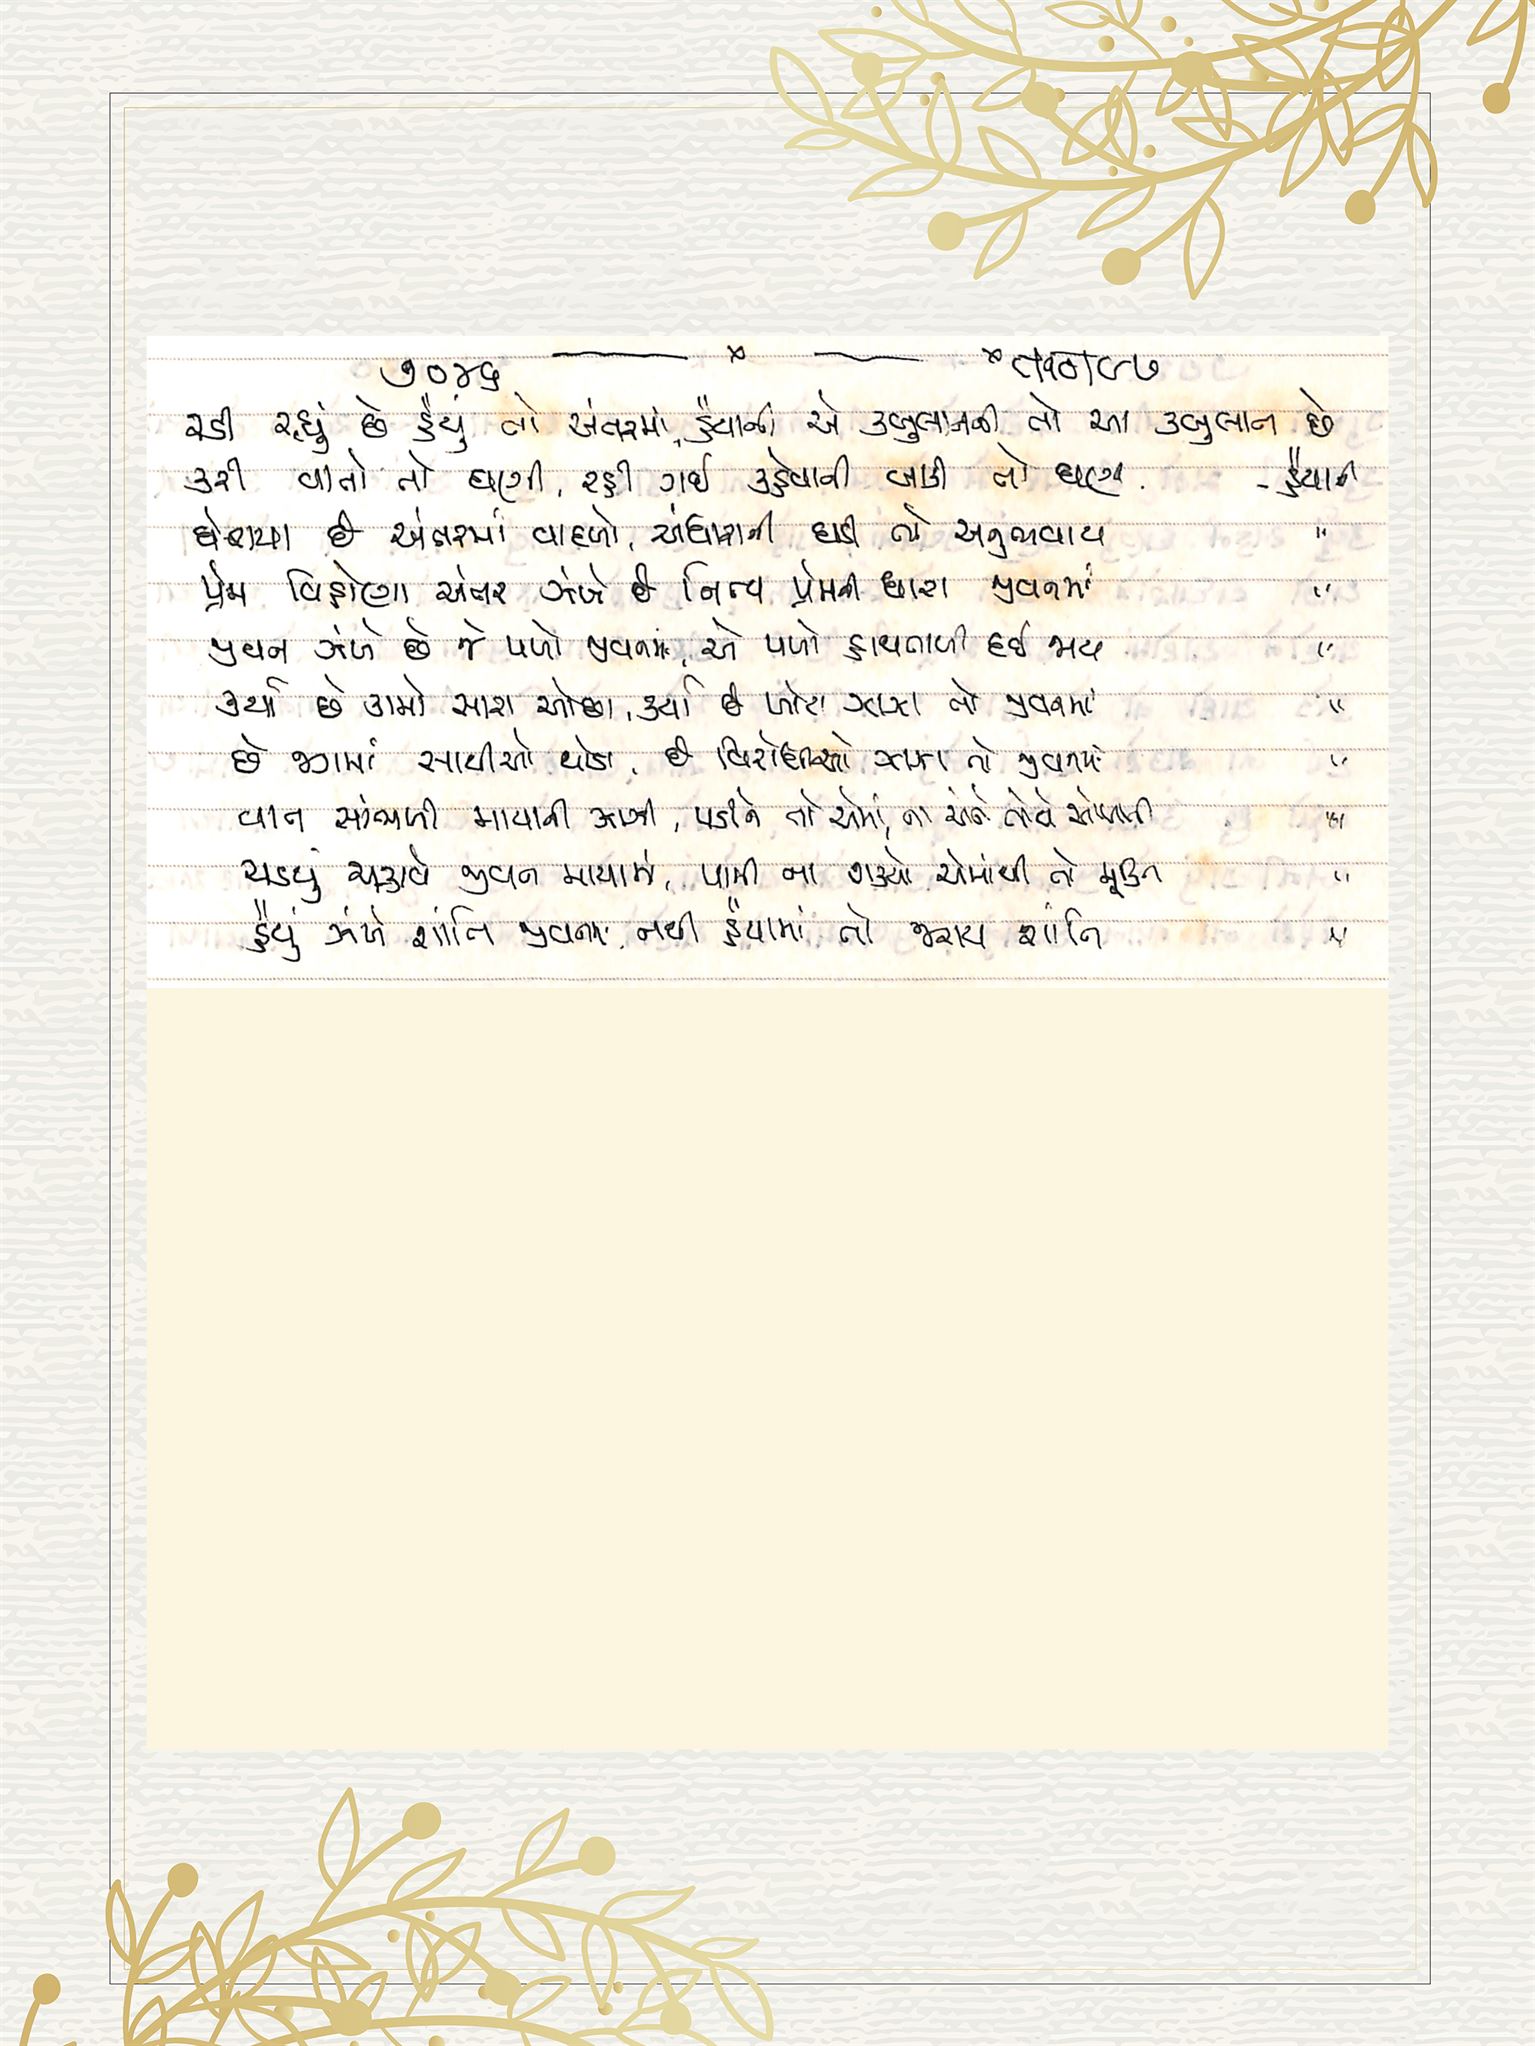 ૭૦૪૬
રડી રહ્યું છે હૈયું તો અંતરમાં, હૈયાની એ કબુલાતની તો આ કબુલાત છે
કરી વાતો તો ઘણી, રહી ગઈ કહેવાની બાકી તો ઘણી - હૈયાની
ઘેરાયા છે અંતરમાં વાદળો, અંધારાની ઘડી તો અનુભવાય "
પ્રેમ વિહોણા અંતર ઝંખે છે નિત્ય પ્રેમની ધારા જીવનમાં "
જીવન ઝંખે છે જે પળો જીવનમાં, એ પળો હાથતાળી દઈ જાય "
કર્યા છે કામો સારા ઓછા, કર્યા છે ખોટા ઝાઝા તો જીવનમાં "
છે જગમાં સાથીઓ થોડા, છે વિરોધીઓ ઝાઝા તો જીવનમાં "
વાત સાંભળી માયાની ઝાઝી, પડીને તો એમાં, ના અંતે તોયે "
ચડયું ચકરાવે જીવન માયામાં, પામી ના શક્યો એમાંથી તો મૂક્તિ "
હૈયું ઝંખે શાંતિ જીવનમાં, નથી હૈયામાં તો જરાય શાંતિ "